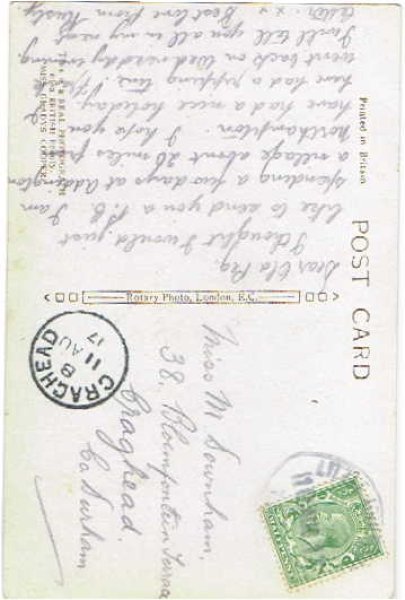 POST CARD
Printed in Britain
Rotary Photo, London, E.C.
THIS IS A REAL PHOTOGRAPH
OF A BRITISH BEAUTY
MISS GLADYS COOPER
Dear Old Peg,
I thought I would just
like to send you a P.C. I am
spending a few days at Addington
a village about 20 miles from
Northampton. I hope you
have had a nice holiday. I
have had a ripping time. Jack
went back on Wednesday evening.
I will tell you all in my next
letter x x Best love from
CRAGHEAD
B
11 AU
17
Miss M Downham,
38, Bloemfontein Terrace
Craghead,
Co Durham